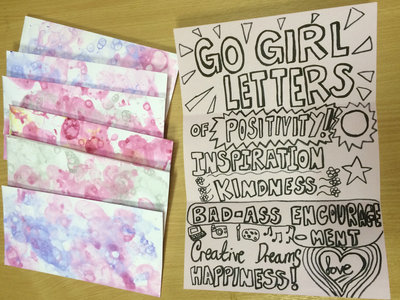 GO GIRL
LETTERS
OF POSITIVITY!
INSPIRATION
KINDNESS
BAD-ASS ENCOURAGE
-MENT
Creative Dreams
HAPPINESS!
love